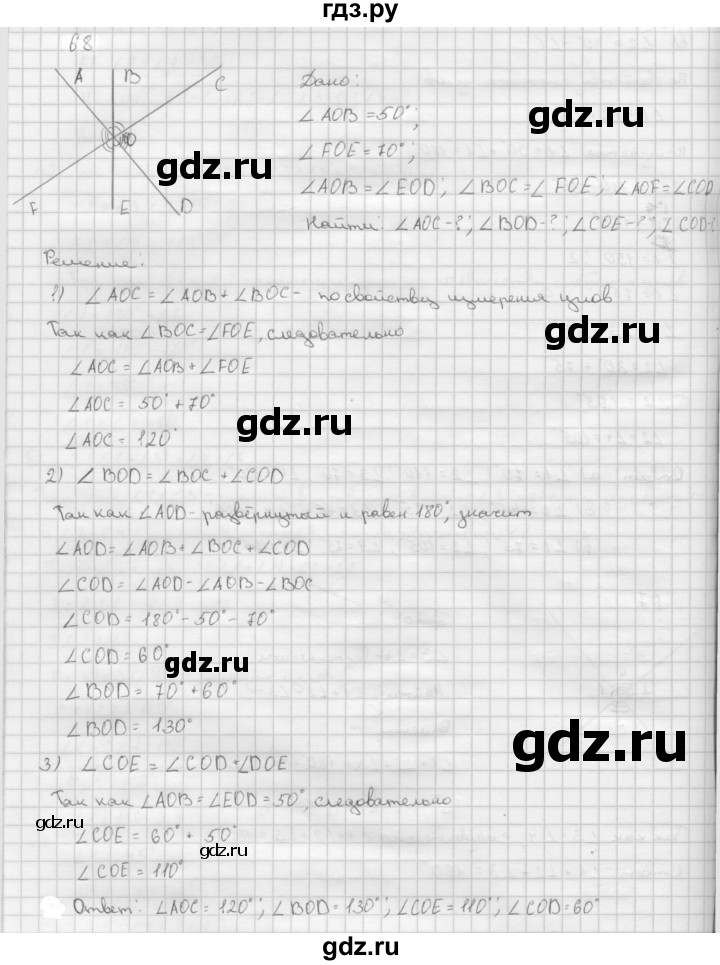 гдз.ру
68
A B C
Дано:
∠AOB = 50°;
gdz.ru
gdz.ru
O
∠FOE = 70°;
∠AOB = ∠EOD; ∠BOC = ∠FOE; ∠AOF = ∠COD
F E D
Найти: ∠AOC - ?; ∠BOD - ?; ∠COE - ?; ∠COD -
Решение:
1) ∠AOC = ∠AOB + ∠BOC - по свойству измерения углов
Так как ∠BOC = ∠FOE, следовательно
gdz.ru
∠AOC = ∠AOB + ∠FOE
∠AOC = 50° + 70°
gdz.ru
∠AOC = 120°
2) ∠BOD = ∠BOC + ∠COD
Так как ∠AOD - развёрнутый и равен 180°, значит
∠AOD = ∠AOB + ∠BOC + ∠COD
∠COD = ∠AOD - ∠AOB - ∠BOC
∠COD = 180° - 50° - 70°
∠COD = 60°
gdz.ru
∠BOD = 70° + 60°
∠BOD = 130°
gdz.ru
3) ∠COE = ∠COD + ∠DOE
Так как ∠AOB = ∠EOD = 50°, следовательно
gdz.ru
∠COE = 60° + 50°
gdz.ru
∠COE = 110°
Ответ: ∠AOC = 120°; ∠BOD = 130°; ∠COE = 110°; ∠COD = 60°
gdz.ru